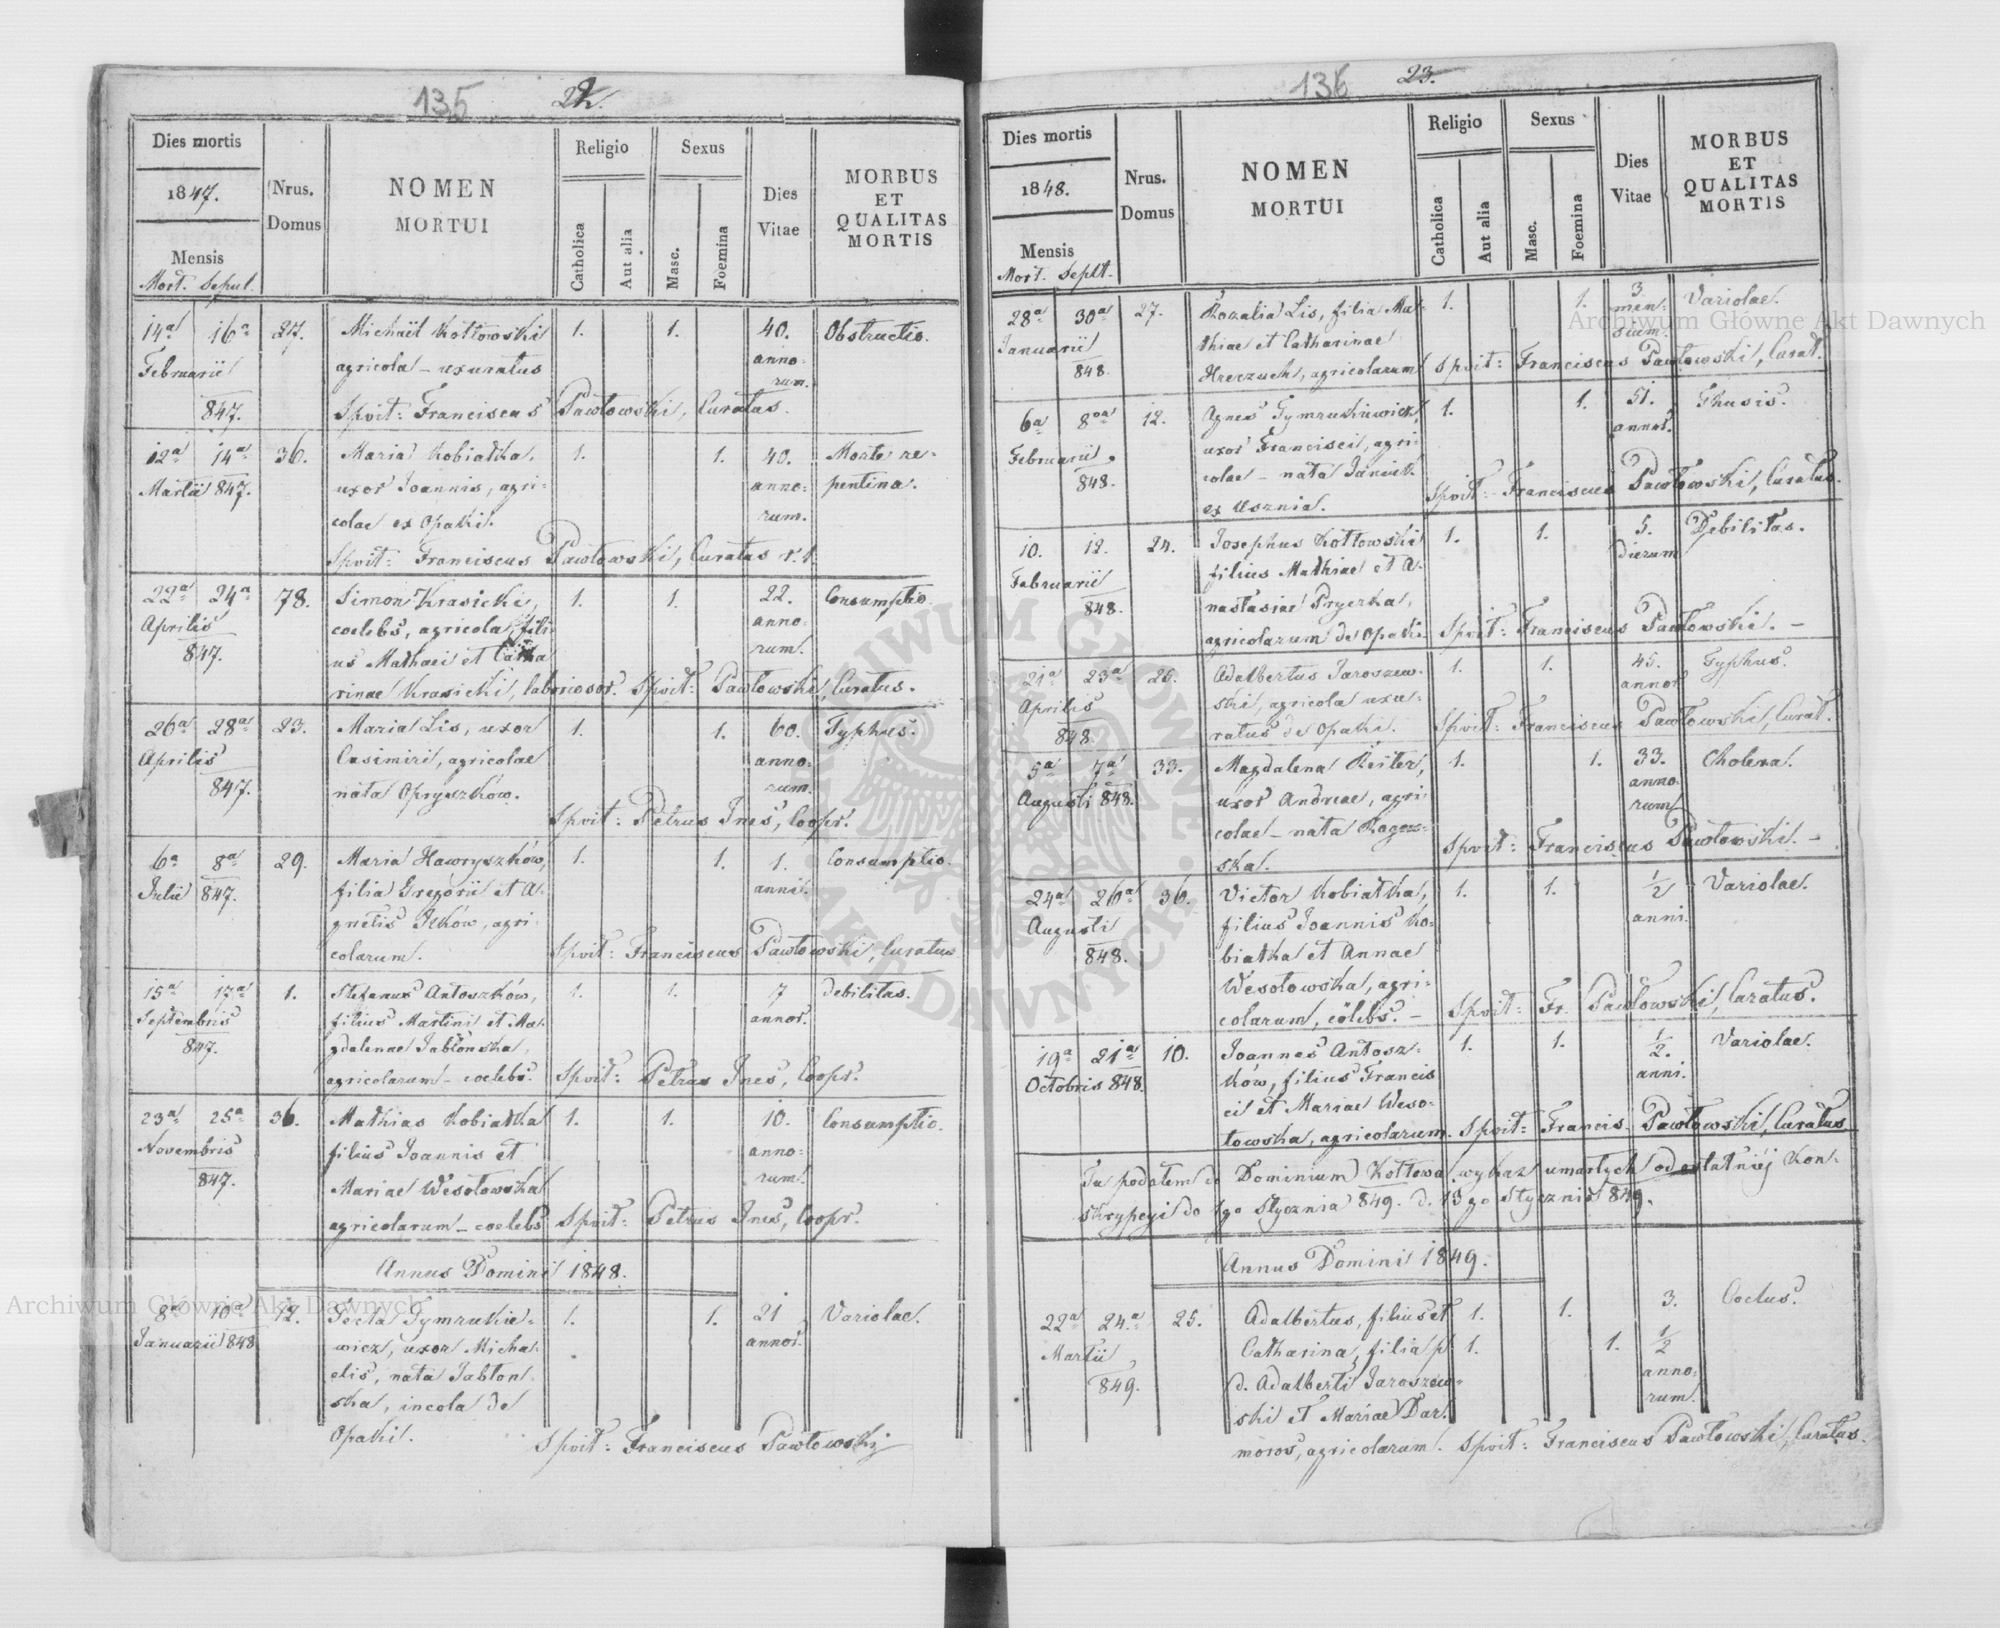 135 22.
Dies mortis
1847.
Mensis
Mort. Sepul.
Nrus.
Domus
NOMEN
MORTUI
Religio
Catholica
Aut alia
Sexus
Masc.
Foemina
Dies
Vitae
MORBUS
ET
QUALITAS
MORTIS
14a 16a 27. Michaël Kotłowski 1. 1. 40. Obstructio.
Februarii agricola - uxuratus anno-
847. rum.
Spvit: Franciscus Pawłowski, Curatus.
12a 14a 36. Maria Kobiałka, 1. 1. 40. Morte re-
Martii 847. uxor Joannis, agri- anno- pentina.
colae ex Opaki. rum.
Spvit: Franciscus Pawłowski, Curatus
22a 24a 78. Simon Krasicki, 1. 1. 22. Consumptio
Aprilis coelebs, agricola, fili- anno-
847. us Mathaei et Catha rum.
rinae Krasicki, laborios. Spvit: Pawłowski, Curatus.
26a 28a 23. Maria Lis, uxor 1. 1. 60. Typhus.
Aprilis Casimiri, agricolae anno-
847. nata Opryszków. rum.
Spvit: Petrus Ines, Coopr.
6a 8a 29. Maria Hawryszków, 1. 1. 1. Consumptio.
Julii 847. filia Gregorii et A- anni.
gnetis Ilków, agri-
colarum. Spvit: Franciscus Pawłowski, Curatus
15a 17a 1. Stefanus Antoszków, 1. 1. 7 debilitas.
Septembris filius Martini et Ma- annor.
847. gdalenae Jabłonska,
agricolarum - coelebs. Spvit: Petrus Ines, Coopr.
23a 25a 36. Mathias Kobiałka 1. 1. 10. Consumptio.
Novembris filius Joannis et anno-
847. Mariae Wesołowska rum.
agricolarum - coelebs Spvit: Petrus Ines, Coopr.
Annus Domini 1848.
8a 10a 12. Tecla Tymrukie- 1. 1. 21 Variolae.
Januarii 848 wicz, uxor Micha- annor.
elis, nata Jabłon-
ska, incola de
Opaki. Spvit: Franciscus Pawłowski
136 23.
Dies mortis
1848.
Mensis
Mort. Sepult.
Nrus.
Domus
NOMEN
MORTUI
Religio
Catholica
Aut alia
Sexus
Masc.
Foemina
Dies
Vitae
MORBUS
ET
QUALITAS
MORTIS
28a 30a 27. Rozalia Lis, filia Ma- 1. 1. 3 Variolae.
Januarii thiae et Catharinae men-
848. agricolarum sium.
Spvit: Franciscus Pawłowski, Curat.
6a 8a 12. Agnes Tymrukiewicz, 1. 1. 51. Thusis.
Februarii uxor Francisci, agri- annor.
848. colae - nata Janicik
ex Usznia. Spvit: Franciscus Pawłowski, Curatus.
10. 12. 24. Josephus Kotłowski 1. 1. 5. Debilitas.
Februarii filius Mathiae et A- dierum
848. nastasiae Pryczka,
agricolarum de Opaki Spvit: Franciscus Pawłowski. -
21a 23a 25. Adalbertus Jaroszew- 1. 1. 45. Typhus.
Aprilis ski, agricola uxu- annor
848. ratus de Opaki. Spvit: Franciscus Pawłowski, Curat.
5a 7a 33. Magdalena Reiter, 1. 1. 33. Cholera.
Augusti 848. uxor Andreae, agri- anno
colae - nata Ragoz- rum
ska. Spvit: Franciscus Pawłowski. -
24a 26a 36. Victor Kobiałka, 1. 1. 1/2 Variolae.
Augusti filius Joannis Ko- anni.
848. białka et Annae
Wesołowska, agri-
colarum, cölebs. - Spvit: Fr. Pawłowski, Curatus.
19a 21a 10. Joannes Antosz- 1. 1. 1/2. Variolae.
Octobris 848. ków, filius Francis anni.
ci et Mariae Weso-
łowska, agricolarum. Spvit: Francis. Pawłowski, Curatus
Tu podałem do Dominium Kołtowa wykaz umarłych od ostatniéj Kon-
skrypcyi do 1go Stycznia 849. d. 13go Stycznia 849.
Annus Domini 1849.
22a 24a 25. Adalbertus, filius et 1. 1. 3. Coctus.
Martii Catharina, filia p. 1. 1. 1/2
849. d. Adalberti Jaroszew- anno-
ski et Mariae Dar- rum.
moros, agricolarum. Spvit: Franciscus Pawłowski, Curatus.
Archiwum Główne Akt Dawnych
Archiwum Główne Akt Dawnych
ARCHIWUM GŁÓWNE
AKT DAWNYCH